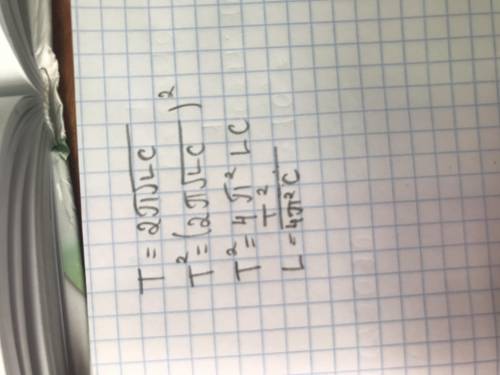 T = 2π√LC
T² = (2π√LC)²
T² = 4π² LC
L = T²/4π²C